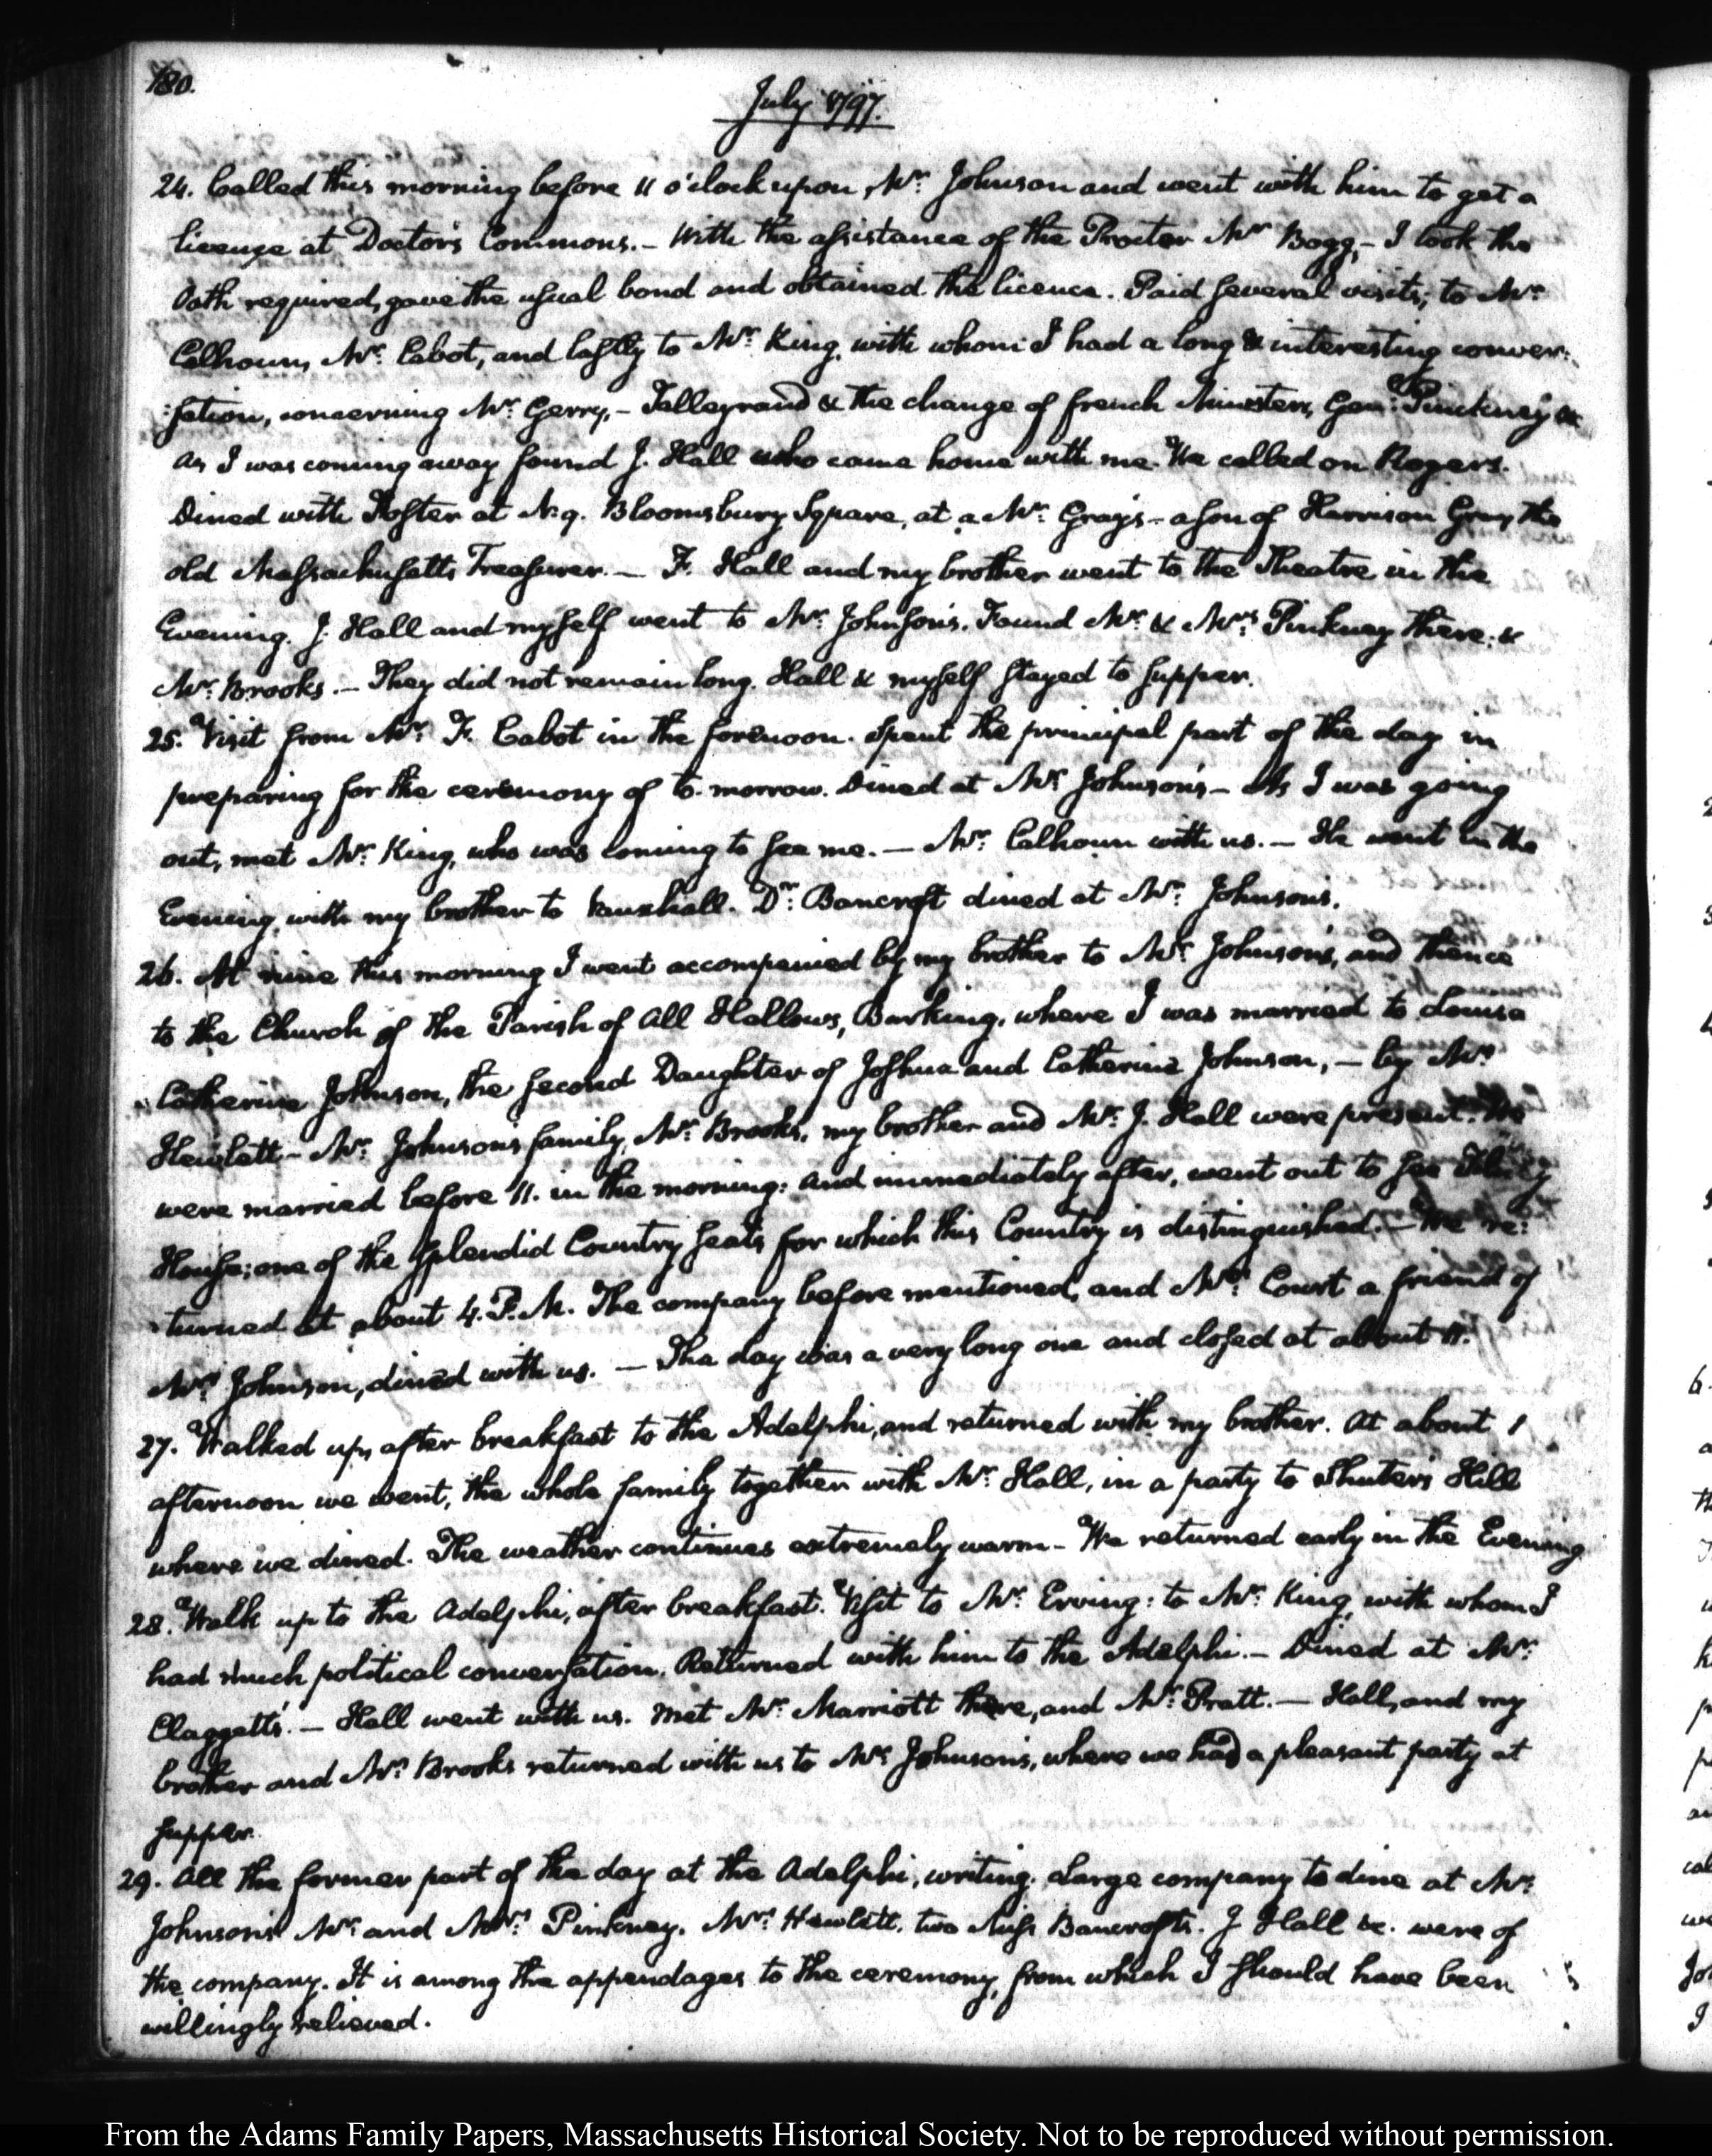 180.
July 1797.
24. Called this morning before 11 o'clock upon Mr. Johnson and went with him to get a
licence at Doctor's Commons. — With the assistance of the Procter Mr Bogg, — I took the
Oath required, gave the usual bond and obtained the licence. Paid several visits; to Mr.
Calhoun, Mr. Cabot, and lastly to Mr. King, with whom I had a long & interesting conver:
:sation, concerning Mr. Gerry, — Talleyrand & the change of french Ministers, Genl. Pinckney &c
As I was coming away found J. Hall who came home with me. We called on Rogers.
Dined with Foster at N. 9. Bloomsbury Square, at a Mr. Gray's — a son of Harrison Gray the
old Massachusetts Treasurer. — F. Hall and my brother went to the Theatre in the
Evening. J. Hall and myself went to Mr. Johnson's. Found Mr. & Mrs. Pinkney there. &
Mr. Brooks. — They did not remain long. Hall & myself stayed to supper.
25. Visit from Mr. F. Cabot in the forenoon. Spent the principal part of the day in
preparing for the ceremony of to-morrow. Dined at Mr. Johnson's — As I was going
out, met Mr. King, who was coming to see me. — Mr. Calhoun with us. — He went in the
Evening, with my brother to Vauxhall. Dr. Bancroft dined at Mr. Johnson's.
26. At nine this morning I went accompanied by my brother to Mr. Johnson's, and thence
to the Church of the Parish of All Hallows, Barking, where I was married to Louisa
Catherine Johnson, the second Daughter of Joshua and Catherine Johnson, — by Mr.
Hewlett — Mr. Johnson's family, Mr. Brooks, my brother and Mr. J. Hall were present. We
were married before 11. in the morning: and immediately after, went out to see Tilney
House; one of the splendid Country seats for which this Country is distinguished. — We re:
:turned at about 4. P. M. The company before mentioned, and Mrs. Court a friend of
Mrs. Johnson, dined with us. — The day was a very long one and closed at about 11.
27. Walked up, after breakfast to the Adelphi, and returned with my brother. At about 1
afternoon we went, the whole family together with Mr. Hall, in a party to Shuter's Hill
where we dined. The weather continues extremely warm — We returned early in the Evening
28. Walk up to the Adelphi, after breakfast. Visit to Mr. Erving: to Mr. King, with whom I
had much political conversation. Returned with him to the Adelphi. — Dined at Mr.
Claggett's. — Hall went with us. Met Mr. Marriott there, and Mr. Pratt. — Hall, and my
brother and Mr. Brooks returned with us to Mr. Johnson's, where we had a pleasant party at
supper.
29. All the former part of the day at the Adelphi, writing. Large company to dine at Mr.
Johnson's Mr. and Mrs. Pinkney. Mrs. Hewlett. two Miss Bancrofts. J Hall &c. were of
the company. It is among the appendages to the ceremony, from which I should have been
willingly relieved.
From the Adams Family Papers, Massachusetts Historical Society. Not to be reproduced without permission.